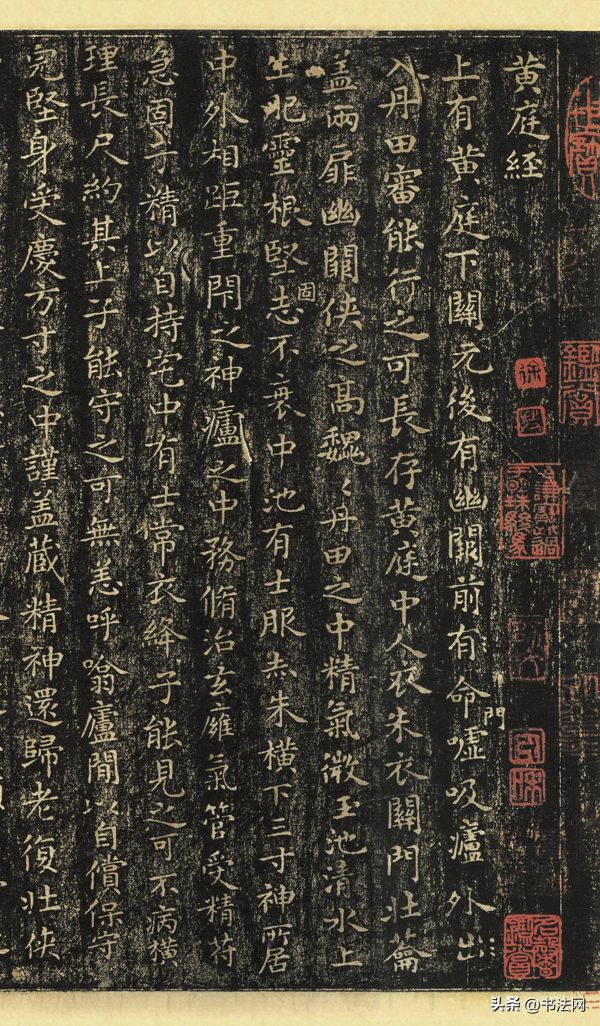 黄庭経
上有黄庭下關元後有幽闕前有命門嘘吸廬外出
入丹田審能行之可長存黄庭中人衣朱衣關門壯籥
盖兩扉幽闕俠之髙巍巍丹田之中精氣微玉池清水上
生肥靈根堅固志不衰中池有士服赤朱横下三寸神所居
中外相距重閇之神廬之中務脩治玄㢕氣管受精苻
急固子精以自持宅中有士常衣絳子能見之可不病横
理長尺約其上子能守之可無恙呼噏廬閒以自償保守
完堅身受慶方寸之中謹盖蔵精神還歸老復壯俠
头条 @书法网